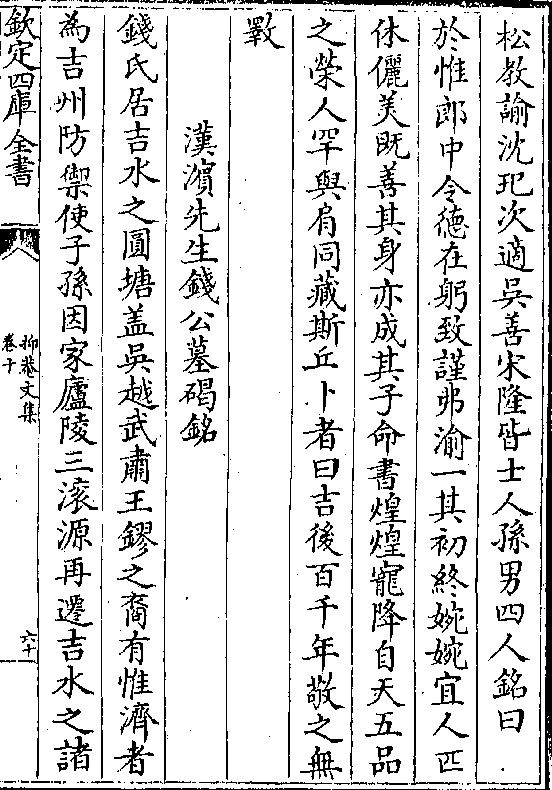 松教諭沈玘次適吳善宋隆皆士人孫男四人銘曰
於惟郎中令德在躬致謹弗渝一其初終婉婉宜人匹
休儷美既善其身亦成其子命書煌煌寵降自天五品
之榮人罕與肩同藏斯丘卜者曰吉後百千年敬之無
斁
漢濵先生錢公墓碣銘
錢氏居吉水之圓塘盖吳越武肅王鏐之裔有惟濟者
為吉州防禦使子孫因家廬陵三滚源再遷吉水之諸
欽定四庫全書
抑菴文集
卷十
六十